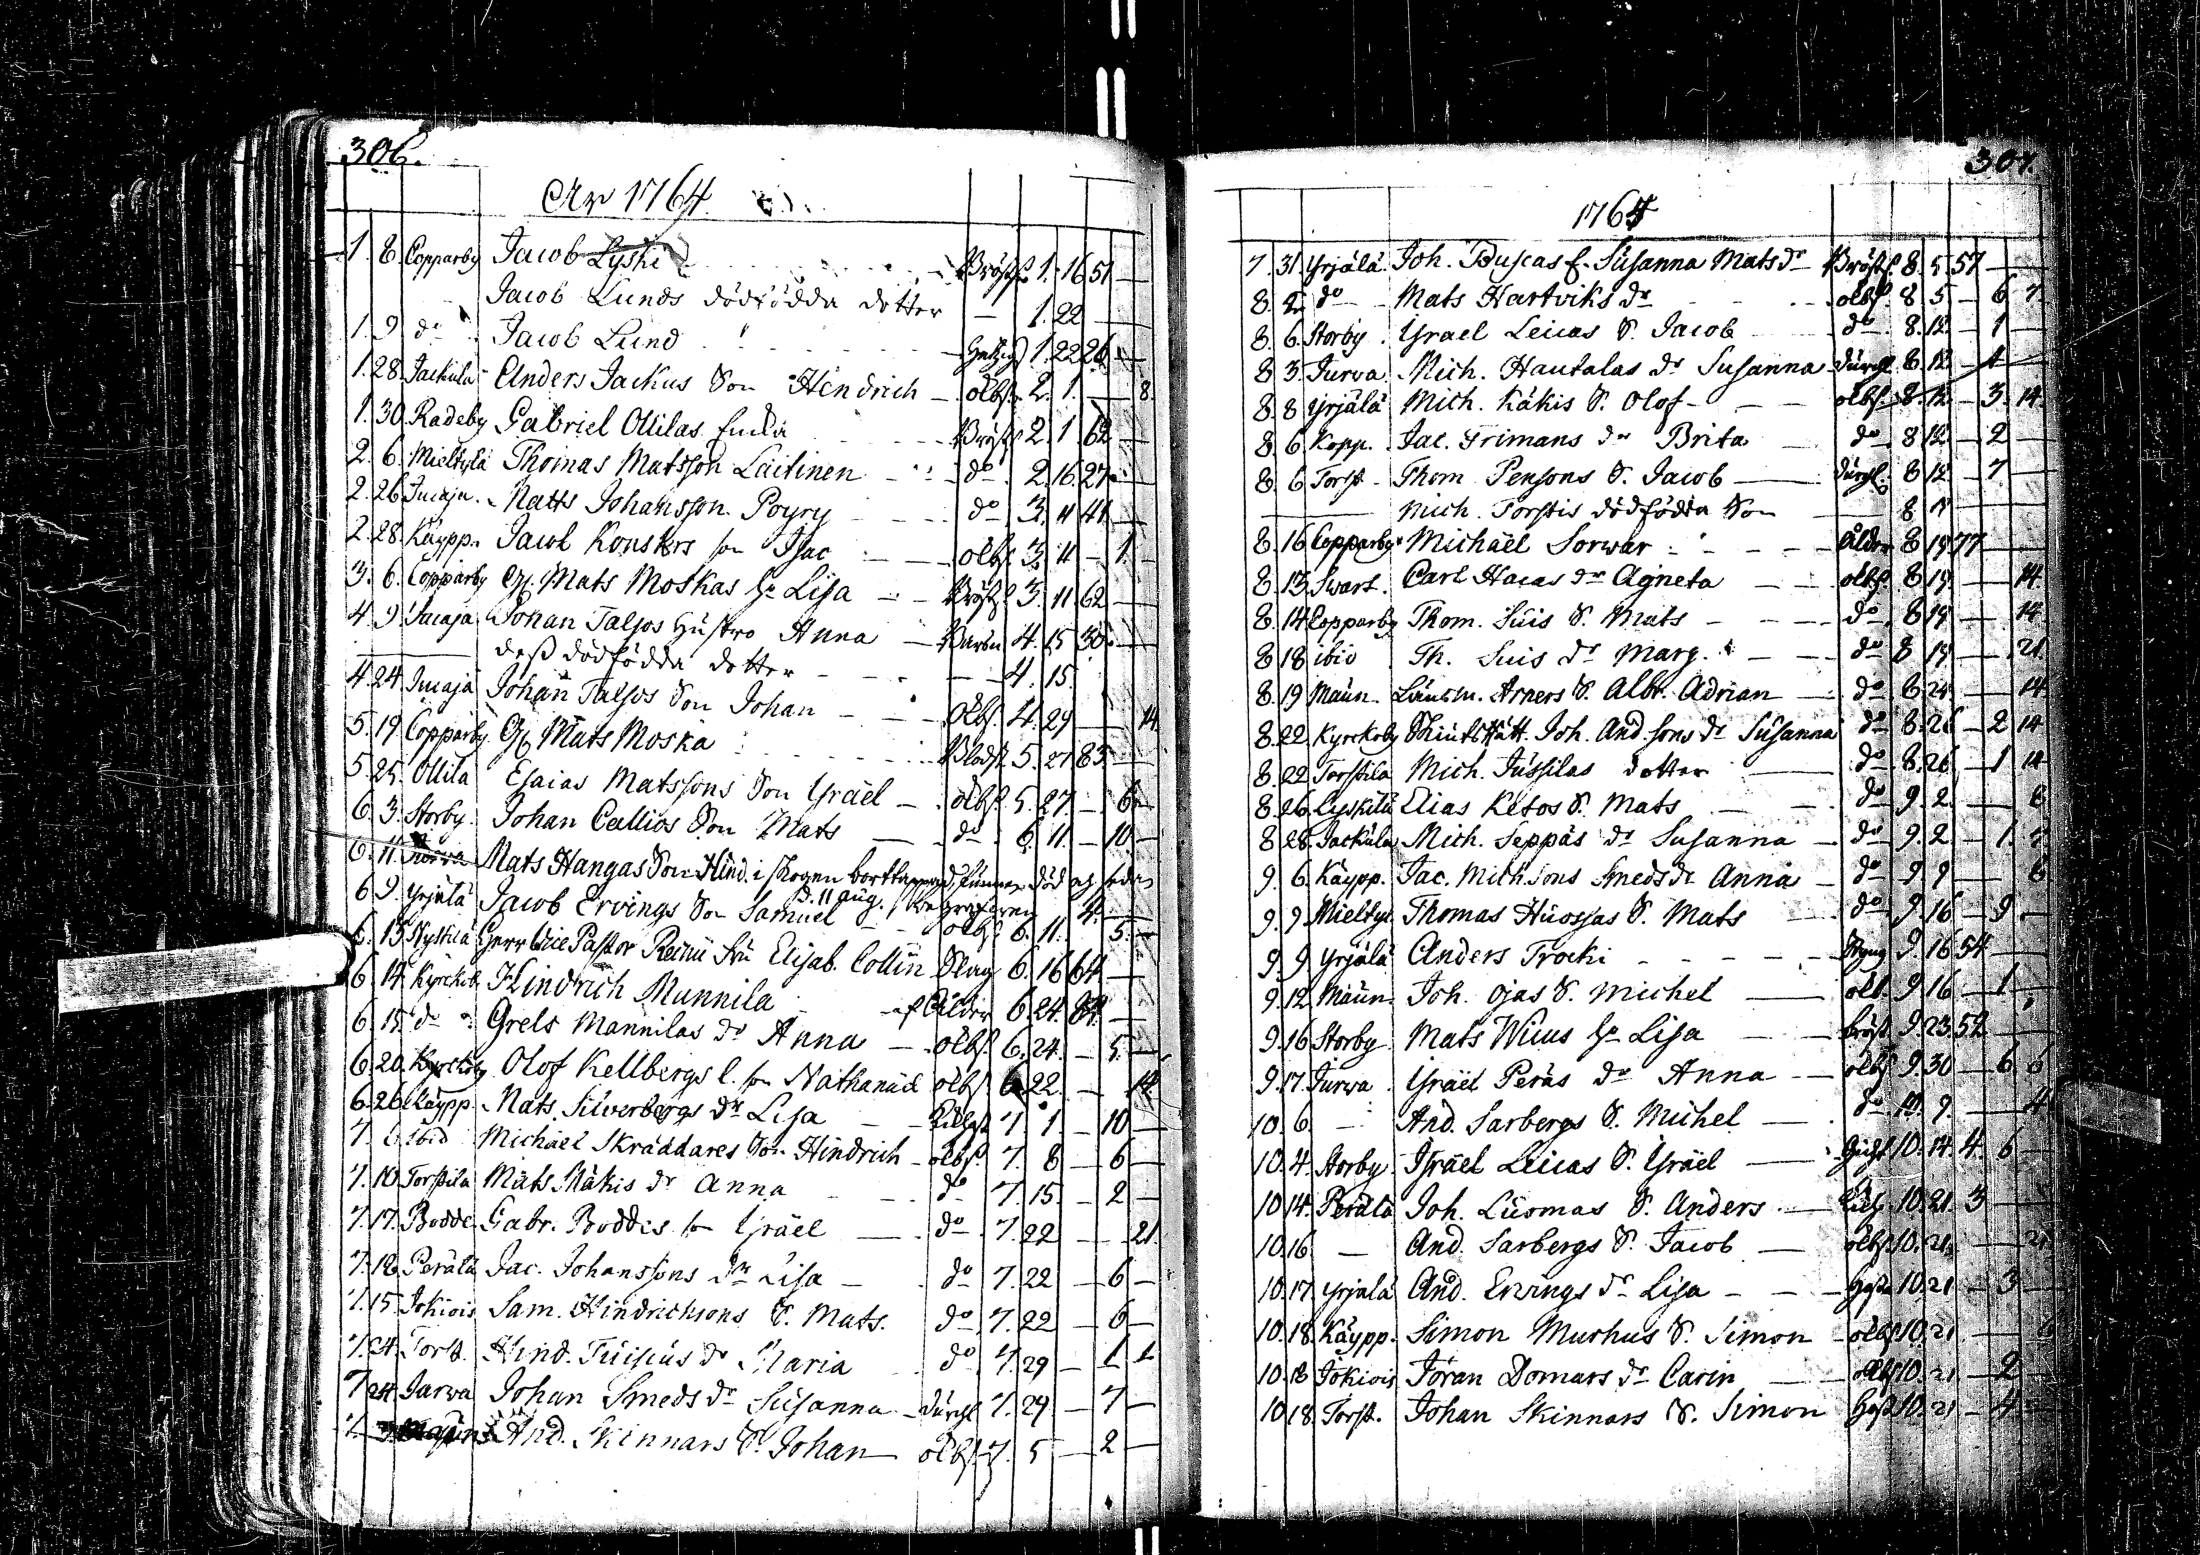 306.
Åhr 1764
1. 8. Copparby Jacob Lyski Bröstsi 1. 16 51 —
Jacob Lunds dödfödda dotter — 1. 22
1. 9 do Jacob Lund 1. 22 26 —
1. 28. Jackula Anders Jackus Son Hindrich — ölbs. 2. 1. — 8
1. 30 Radeby Gabriel Ollilas Enka Bröst 2. 1 62 —
2. 6. Mieltylä Thomas Matsson Laitinen do 2. 16. 27 —
2. 26 Jucaja. Matts Johansson Poyry do 3. 11 41 —
2. 28. Käypp. Jacob Konskrs son Isac ölbs 3. 11 — 1. —
3. 6. Copparby Gl. Mats Moskas h. Lisa — Bröst 3. 11. 62 —
4. 9 Jucaja Johan Taljos Hustro Anna — Barn 4. 15 30. —
dess dödfödda dotter — — 4. 15.
4. 24. Jucaja Johan Taljos Son Johan — ölbs. 4. 29 — 14
5. 19 Copparby Gl. Mats Moska 5. 27 83 —
5. 25. Ollila Esaias Matssons Son Ysräel — ölbs. 5. 27. — 6 —
6. 3. Storby. Johan Callios Son Mats — do 6. 11. — 10 —
6. 11. Mats Hangas Son Hind. i skogen borttappad, funnen död och sedan
d. 11 aug. begrafven 4. —
6 9. Yrjälä Jacob Ervings Son Samuel ölbs 6. 11. 5. —
6. 13 Kyskilä Herr Vice Pastor Reinii Fru Elisab. Collin Slag 6. 16 64 —
6 14. Kyrckob. Hindrich Munnila af Ålder 6. 24. —
6. 15. do Grels Mannilas dr Anna — ölbs. 6. 24. — 5. —
6. 20. Kyrckoby Olof Kellbergs l. son Nathanäel ölbs 6 22. — 14
6. 26 Käypp. Mats Silverbergs dr Lisa 7. 1 — 10 —
7. 6 ibid Michäel Skräddares Son Hindrich — ölbs. 7. 8 — 6 —
7. 10. Torstila Mats Mäkis dr Anna do 7. 15. — 2 —
7. 17. Bodde Gabr. Boddes son Ysräel — do 7. 22 — 21
7. 18. Perälä Jac. Johanssons dr Lisa — do 7. 22 — 6 —
7. 15. Jokiois Sam. Hindricksons S. Mats. do 7. 22 — 6 —
7. 24. Torst. Hind. dr Maria do 7. 29 — 1 1
7 24. Jurva Johan Smeds dr Susanna — durchl 7. 29 — 7 —
7. And. Skinnars S. Johan ölbs. 7. 5 — 2 —
307.
1764
7. 31. Yrjälä Joh. Buscas E. Susanna Mats dr Bröst. 8. 5. 57 —
8. 2. do Mats Hartviks dr ölbs. 8. 5 — 6 7
8. 6. Storby. Ysrael Leucas S. Jacob do 8. 12. — 1 —
8 3. Jurva Mich. Hautalas dr Susanna durchl. 8. 12. — 1 —
8. 8 Yrjälä Mich. Käkis S. Olof — ölbs. 8. 12. — 3. 14.
8. 6. Kopp. Jac. Frimans dr Brita do 8 12 — 2 —
8. 6 Torst. Thom Pensons S. Jacob — durchl. 8 12 — 7 —
Mich. Torstis dödfödda Son — 8 7
8. 16 Copparby Michäel Sorwar — Ålder 8 19 77 —
8. 13. Swart. Carl Hacas dr Agneta — ölbs. 8 19. — 14.
8. 14 Copparby Thom. Suis S. Mats — do 8 19 — 14
8 18 ibid Th. Suis dr Marg. — do 8 19 — 21.
8. 19 Maun. Länsm. Arners S. Albr. Adrian — do 8. 24. — 14
8. 22 Kyrckoby Joh. And.sons dr Susanna do 8. 26 — 2 14
8. 22 Torstila Mich. Jussilas dotter — do 8. 26 — 1 14
8. 26 Lyskilä Elias Ketos S. Mats — do 9. 2. — 6
8 28. Jackula Mich. Seppäs dr Susanna — do 9. 2 — 1. 7
9. 6. Käypp. Jac. Mich.sons Smeds dr Anna — do 9 9 — 6
9. 9 Mieltyl. Thomas Huossas S. Mats — do 9. 16 — 9 —
9 9 Yrjälä Anders Trocki — 9. 16 54 —
9. 12. Maun. Joh. Ojas S. Michel — ölb. 9. 16 — 1 —
9. 16 Storby Mats Wius h. Lisa bröst. 9. 23. 52 —
9. 17. Jurwa. Ysräel Peräs dr Anna — ölbs 9. 30 — 6 6
10. 6. — And. Sarbergs S. Michel — do 10. 9. — 4
10. 4. Storby Isräel Leucas S. Ysräel — 10. 14. 4. 6 —
10 14. Perälä Joh. Luomas S. Anders — 10. 21. 3 —
10. 16 — And. Sarbergs S. Jacob — ölbs 10. 21. — 21
10. 17. Yrjälä And. Ervings dr Lisa — — Host 10. 21 — 3 —
10. 18. Käypp. Simon Murhus S. Simon — ölbs 10. 21 — 6
10. 18 Jokiois Jöran Domars dr Carin — ölbs 10. 21 — 2 —
10. 18 Torst. Johan Skinnars S. Simon Host 10. 21 — 4 —